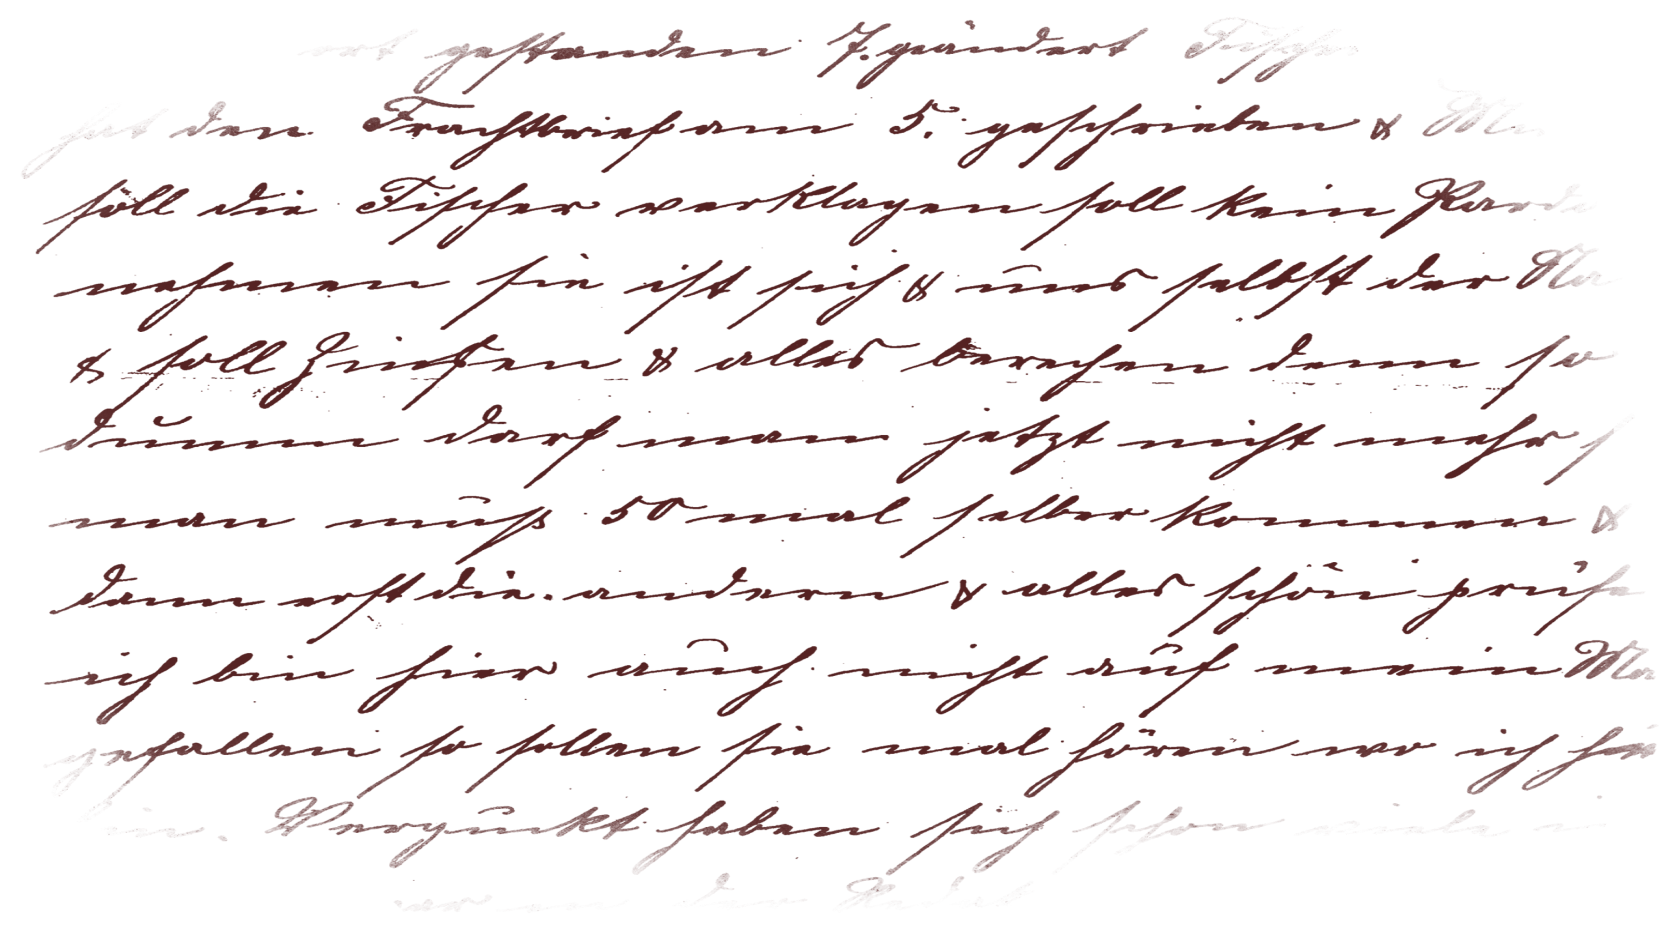 gestanden 7. geändert Fischer
hat den Frachtbrief am 5. geschrieben &
soll die Fischer verklagen soll kein
nehmen sie ist sich & uns selbst der
& soll Zinsen & alles berechen denn so
dumm darf man jetzt nicht mehr
man muß 50 mal selber kommen &
dann erst die andern & alles schön
ich bin hier auch nicht auf mein
gefallen so sollen sie mal hören wo ich hier
bin. haben sich schon viele
der